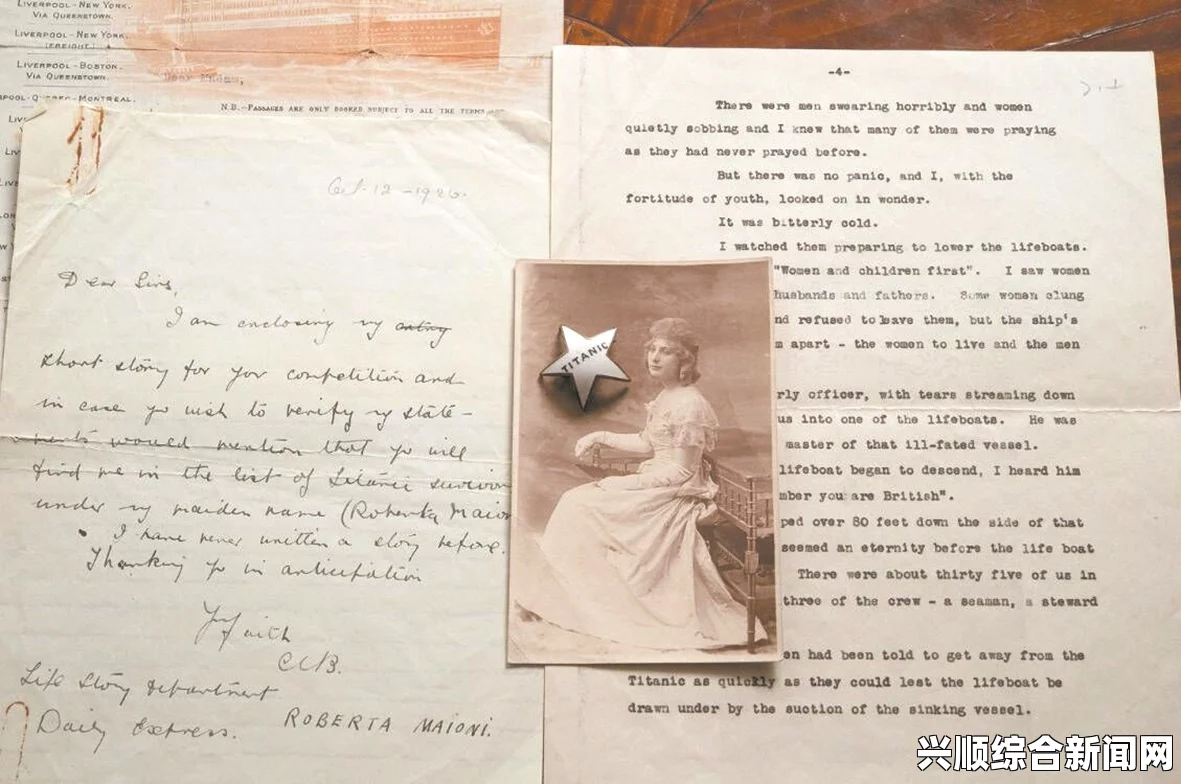 LIVERPOOL-NEW YORK.
VIA QUEENSTOWN.
LIVERPOOL-NEW YORK.
(FREIGHT.)
LIVERPOOL-BOSTON.
VIA QUEENSTOWN.
POOL-QUEBEC-MONTREAL.
Dear Madam,
N.B.-PASSAGES ARE ONLY BOOKED SUBJECT TO ALL THE TERMS
Oct. 12-1926.
Dear Sirs,
I am enclosing my
short story for yor competition and
in case yo wish to verify my state-
ments would mention that yo will
find me in the list of Titanic survivor
under my maiden name (Roberta Maion
I have never written a story before.
Thanking yo in anticipation
Yrs faith
CCB.
Life Story Department
Daily Express.
ROBERTA MAIONI.
TITANIC
-4-
There were men swearing horribly and women
quietly sobbing and I knew that many of them were praying
as they had never prayed before.
But there was no panic, and I, with the
fortitude of youth, looked on in wonder.
It was bitterly cold.
I watched them preparing to lower the lifeboats.
"Women and children first". I saw women
husbands and fathers. Some women clung
nd refused to leave them, but the ship's
m apart - the women to live and the men
rly officer, with tears streaming down
us into one of the lifeboats. He was
master of that ill-fated vessel.
lifeboat began to descend, I heard him
mber you are British".
ped over 80 feet down the side of that
seemed an eternity before the life boat
There were about thirty five of us in
three of the crew - a seaman, a steward
en had been told to get away from the
Titanic as quickly as they could lest the lifeboat be
drawn under by the suction of the sinking vessel.
兴顺综合新闻网